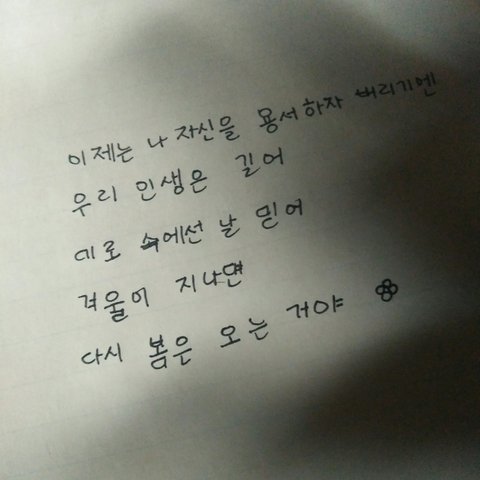 이제는 나 자신을 용서하자 버리기엔
우리 인생은 길어
미로 속에선 날 믿어
겨울이 지나면
다시 봄은 오는 거야